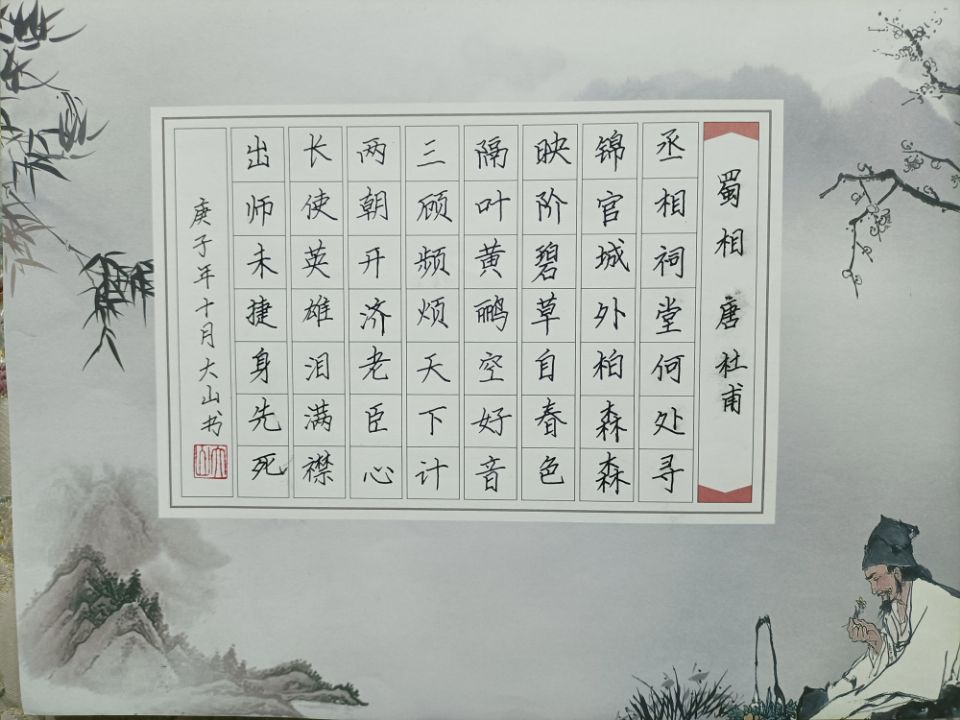 蜀相 唐 杜甫
丞相祠堂何处寻
锦官城外柏森森
映阶碧草自春色
隔叶黄鹂空好音
三顾频烦天下计
两朝开济老臣心
出师未捷身先死
长使英雄泪满襟
庚子年十月大山书
大山